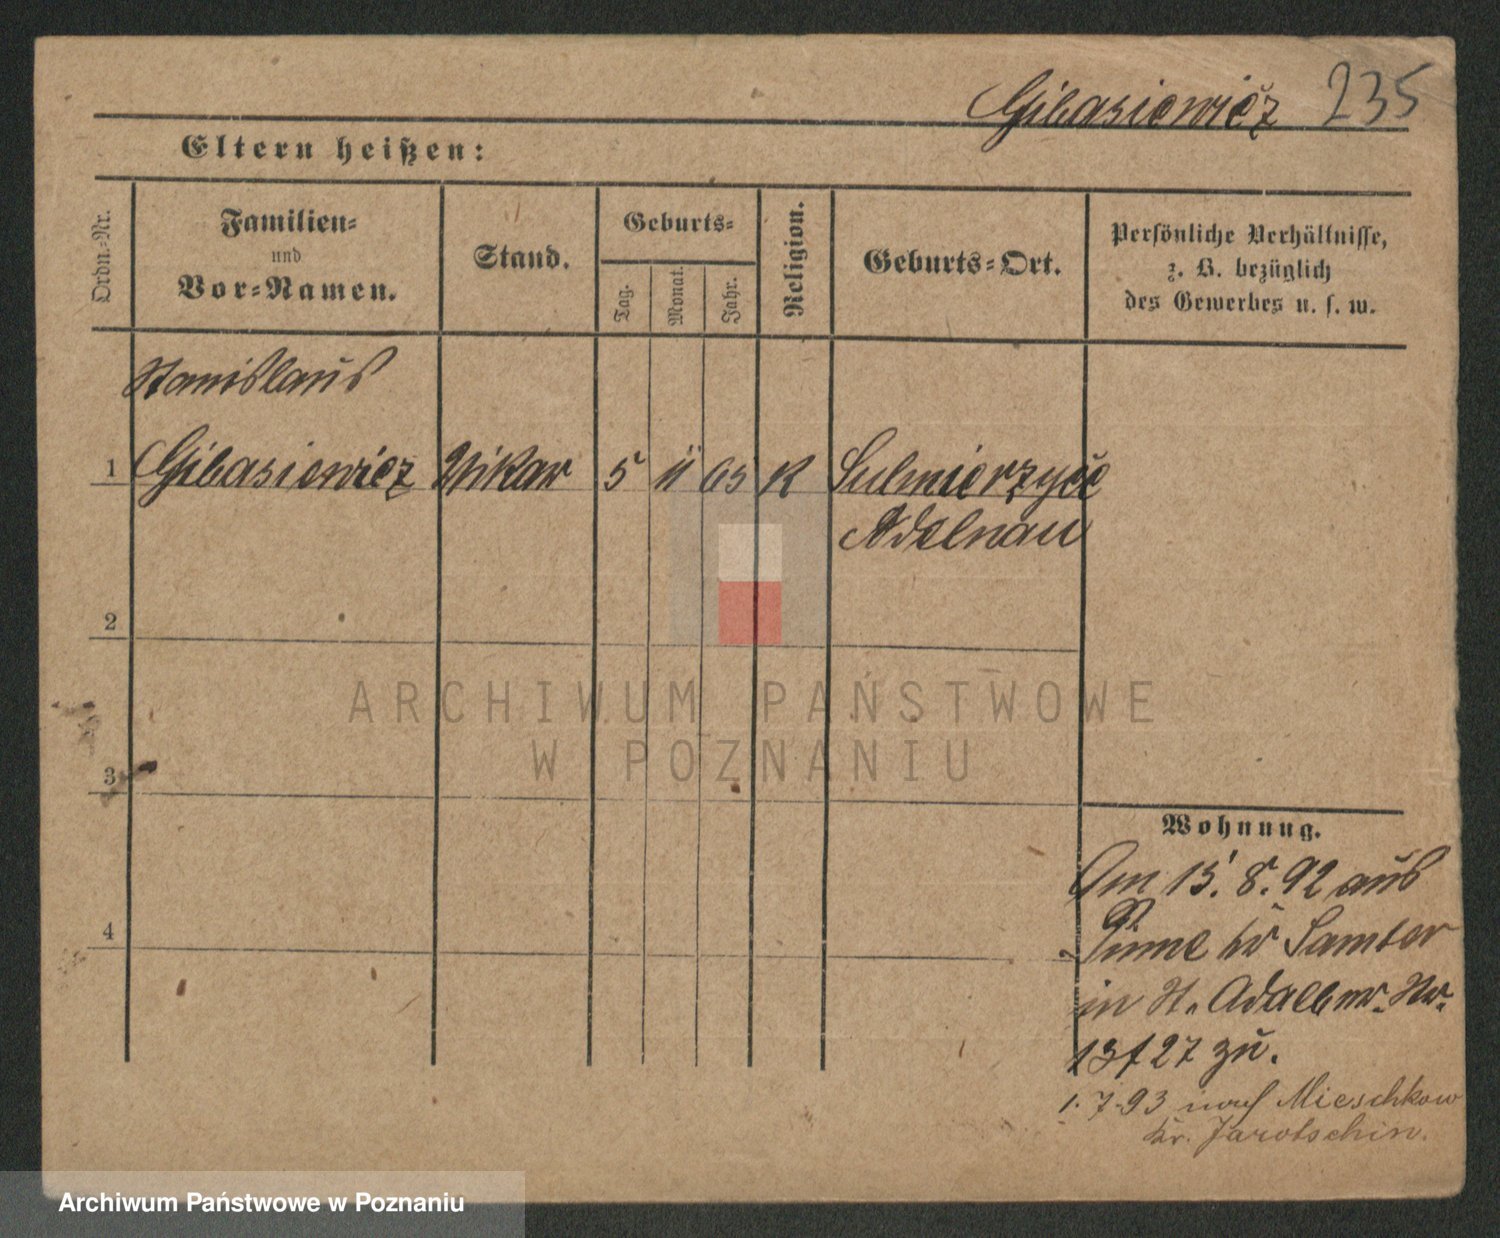 Gibasiewicz 235
Eltern heißen:
Ordn.-Nr.
Familien-
und
Vor-Namen.
Stand.
Geburts-
Tag.
Monat.
Jahr.
Religion.
Geburts-Ort.
Persönliche Verhältnisse,
z. B. bezüglich
des Gewerbes u. s. w.
Stanislaus
1 Gibasiewicz Vikar 5 11 65 K Sulmierzyce
Adelnau
2
3
4
ARCHIWUM PAŃSTWOWE
W POZNANIU
Wohnung.
Am 15. 8. 92 aus
Pinne Kr Samter
in St. Adalber. Str.
13/27 zu.
1. 7. 93 nach Mieschkow
Kr. Jarotschin.
Archiwum Państwowe w Poznaniu